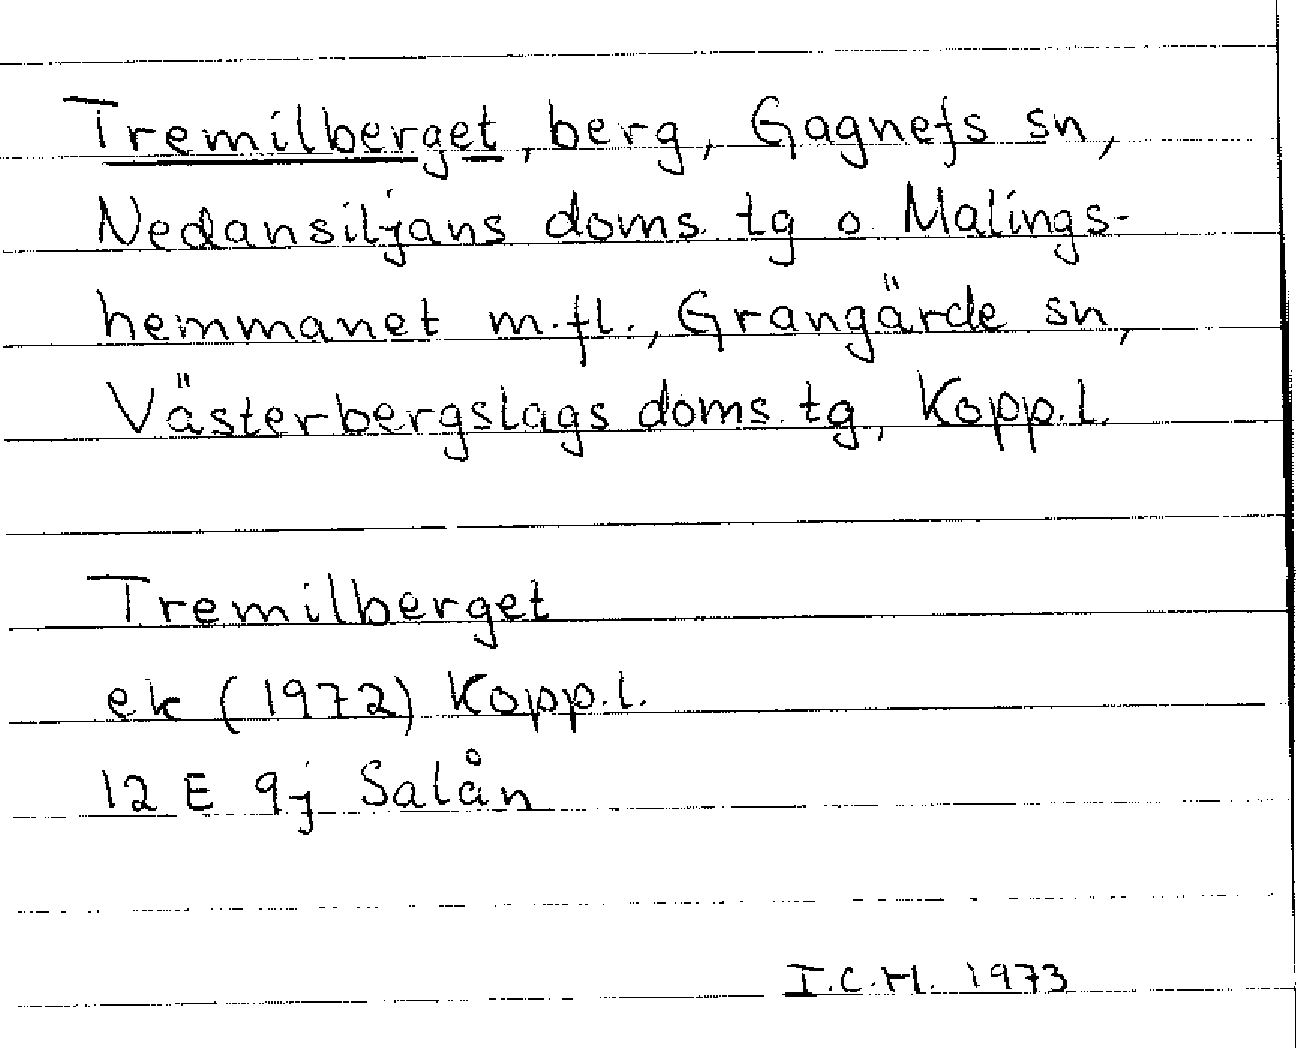 Tremilberget, berg, Gagnefs sn,
Nedansiljans doms. tg o. Malings-
hemmanet m.fl., Grangärde sn,
Västerbergslags doms. tg, Kopp.l.
Tremilberget
ek (1972) Kopp.l.
12 E 9j Salån
I.C.M. 1973